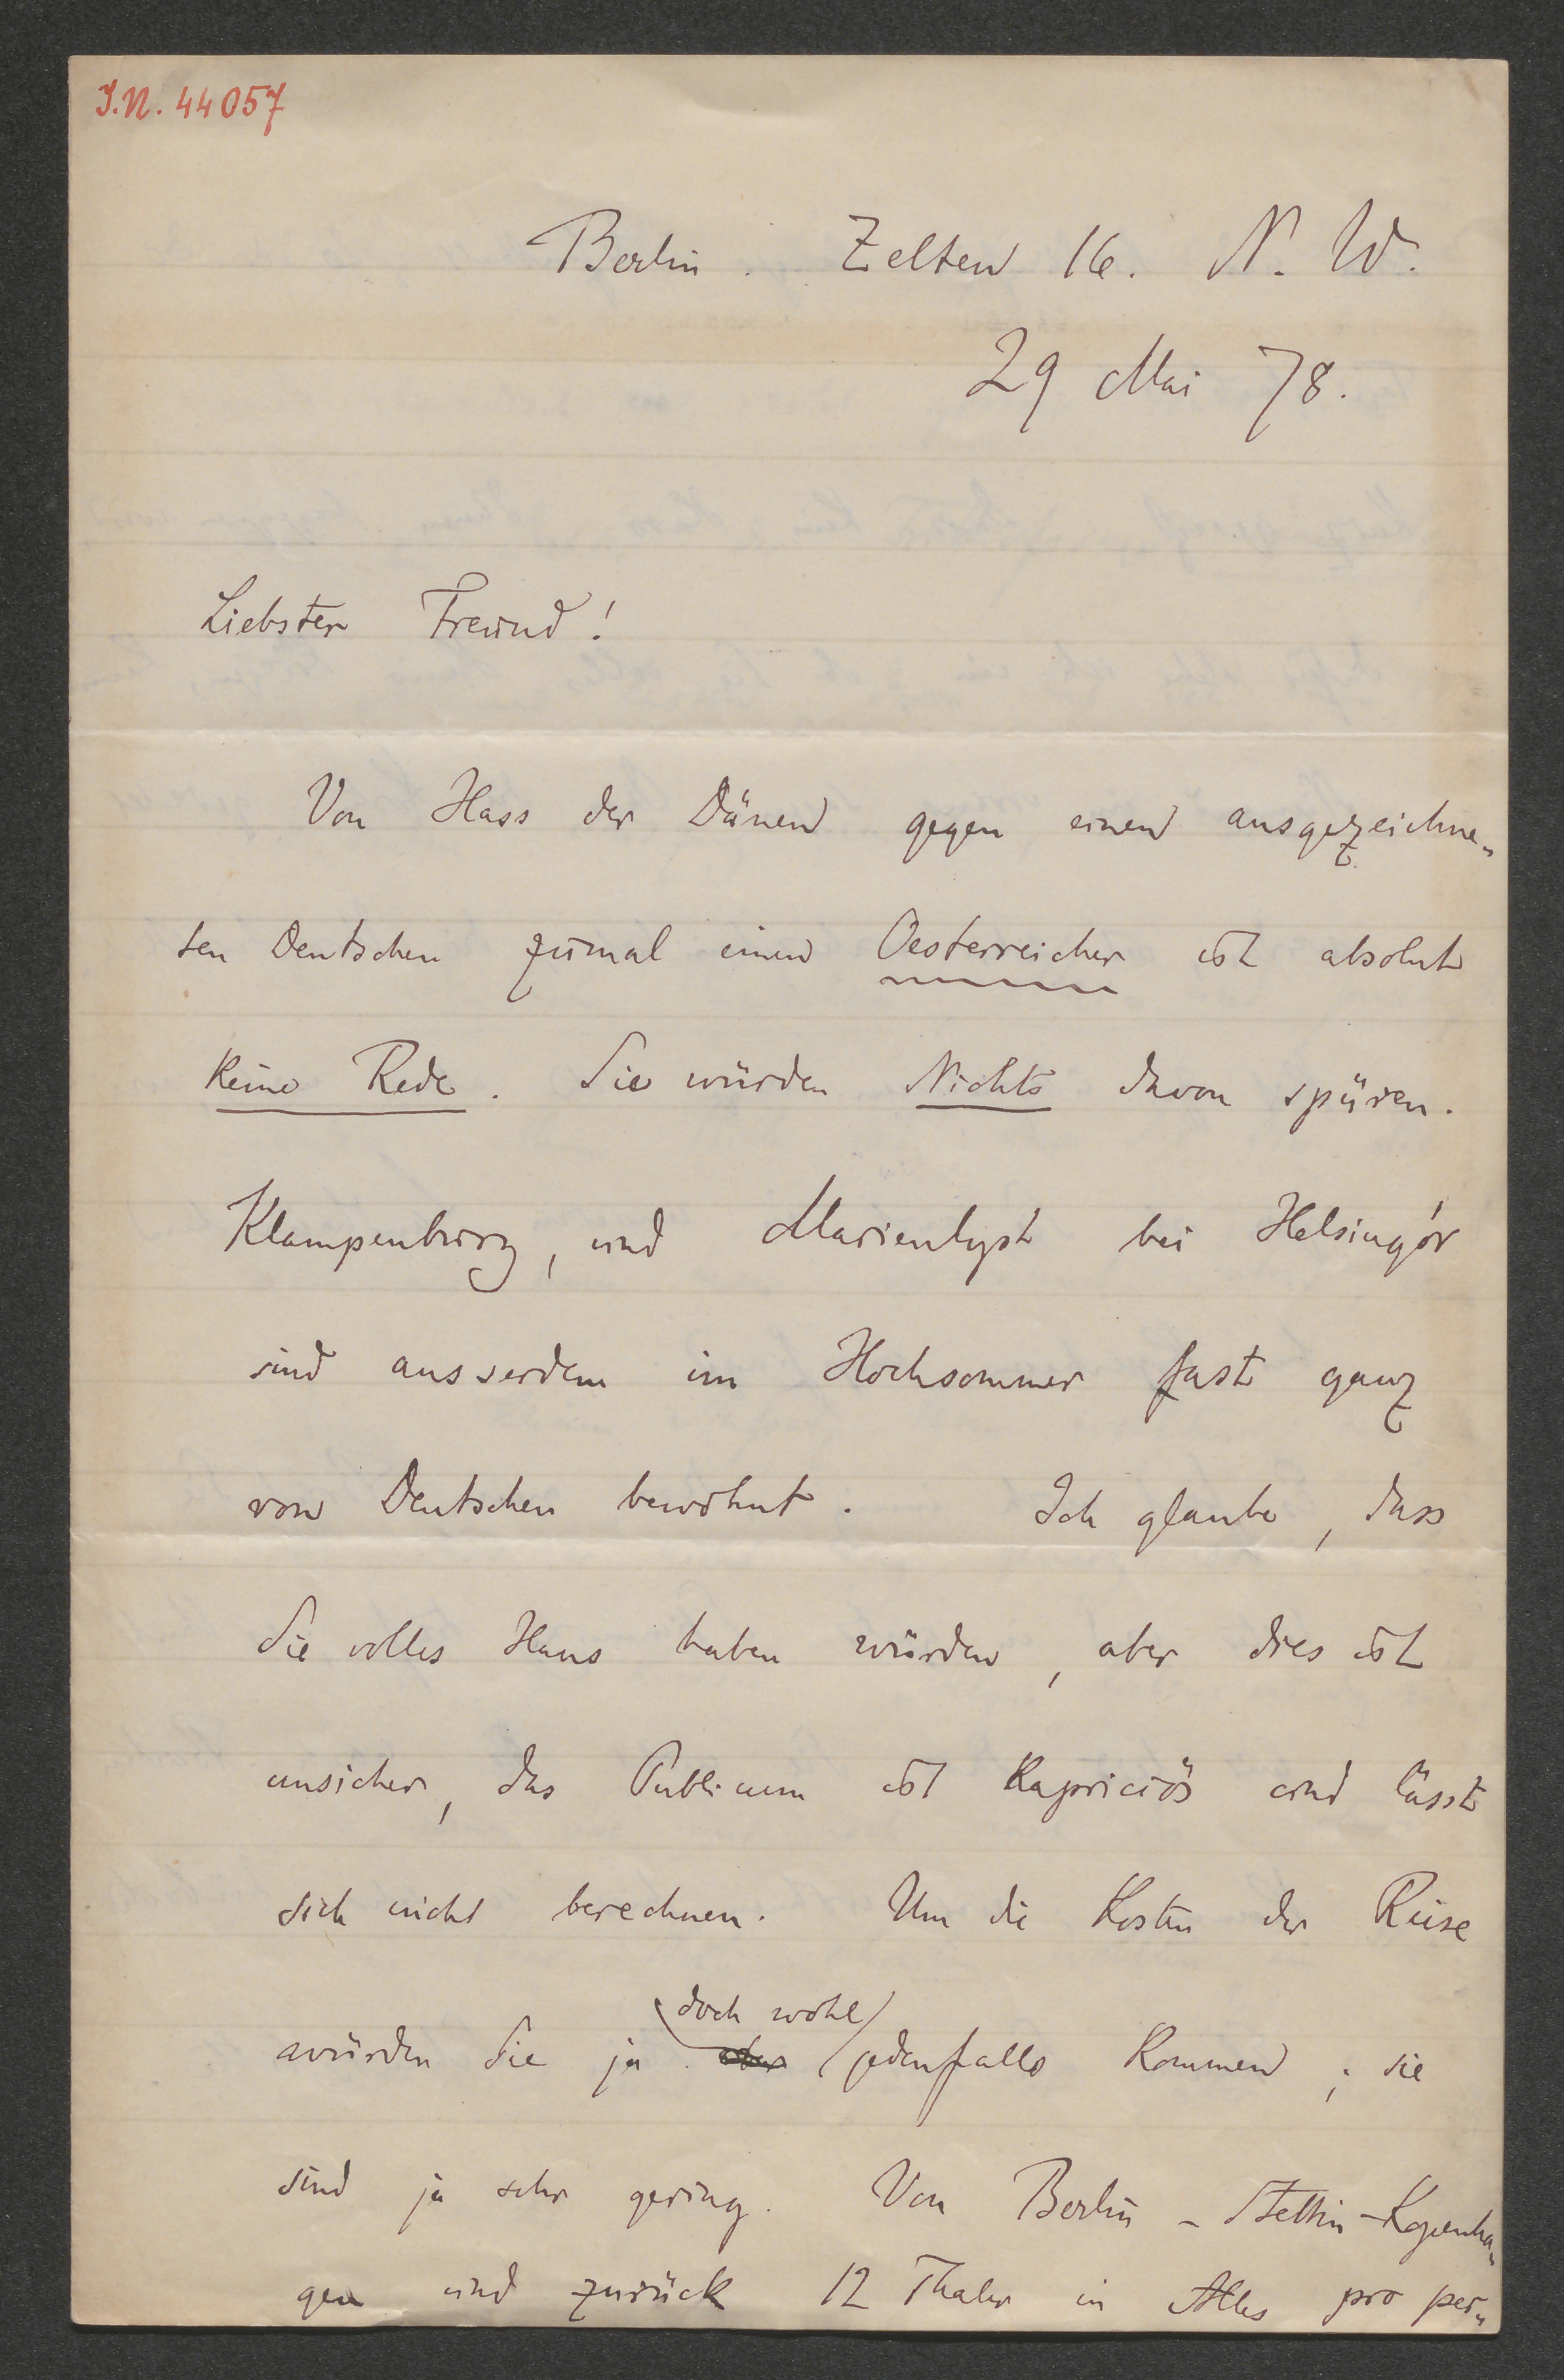 J.N. 44057
Berlin. Zelten 16. N. W.
29 Mai 78.
Liebster Freund!
Von Hass der Dänen gegen einen ausgezeichne-
ten Deutschen zumal einen Oesterreicher ist absolut
keine Rede. Sie würden Nichts davon spüren.
Klampenburg, und Marienlyst bei Helsingór
sind ausserdem im Hochsommer fast ganz
von Deutschen bewohnt. Ich glaube, dass
Sie volles Haus haben würden, aber dies ist
unsicher, das Publicum ist kapriciös und lässt
sich nicht berechnen. Um die Kosten der Reise
doch wohl
würden Sie ja aber jedenfalls kommen; sie
sind ja sehr gering. Von Berlin - Stettin - Kopenha-
gen und zurück 12 Thaler in Alles pro per-